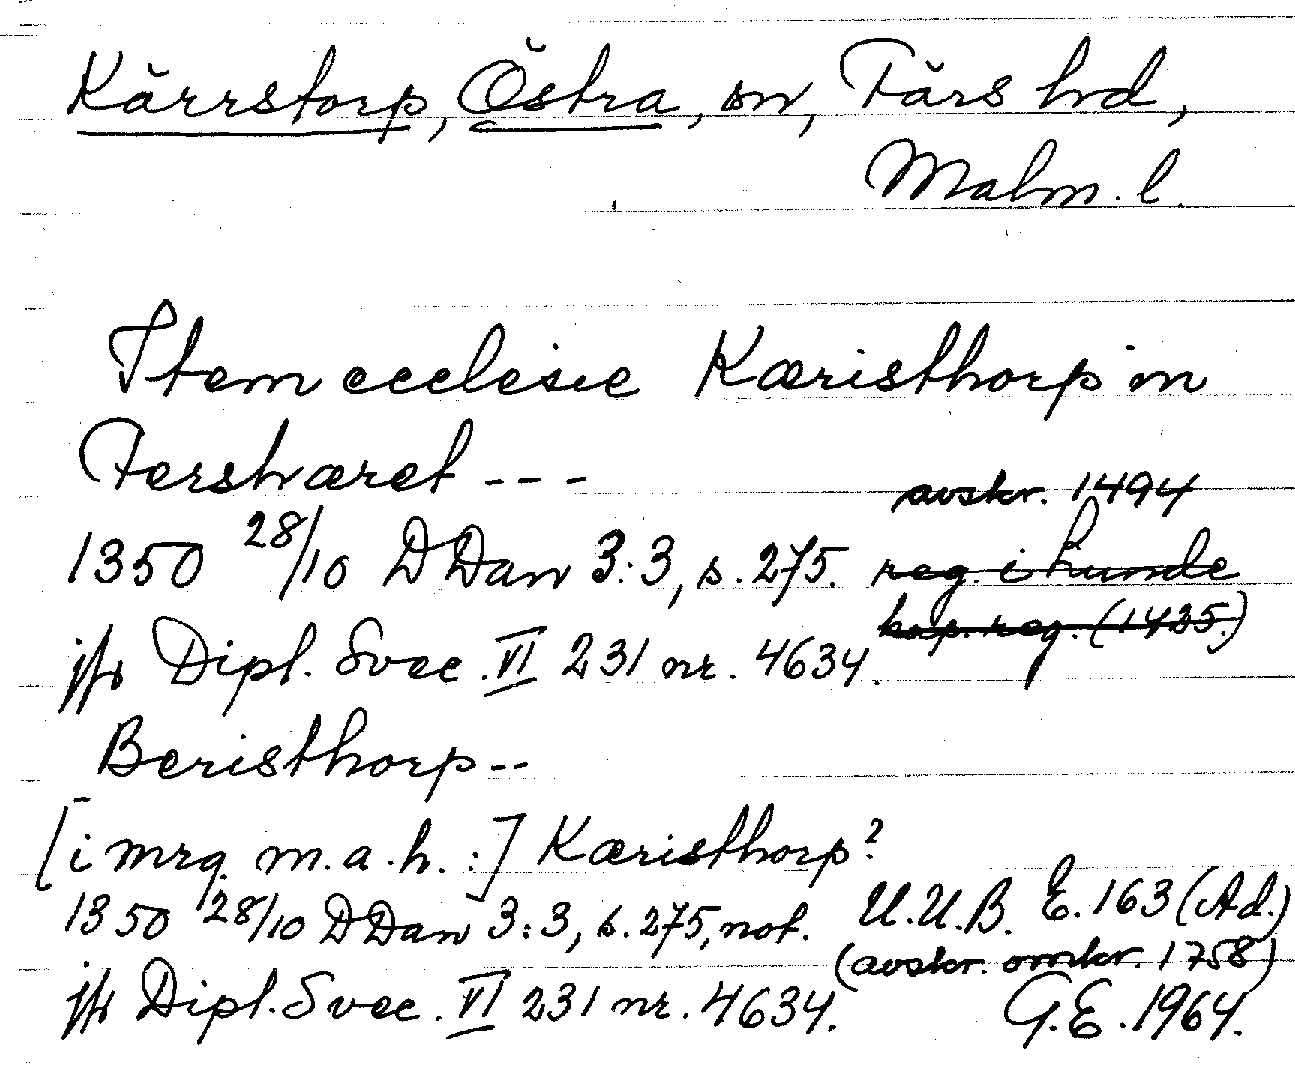 Kärrstorp, Östra, sn, Färs hd,
Malm. l.
Item ecclesie Kæristhorp in
Fershæret ---
avskr. 1494
1350 28/10 DDan 3:3, s. 275. reg. i Lunde
kap. reg. (1435.)
jfr Dipl. Svec. VI 231 nr. 4634.
Beristhorp --
[i mrg. m. a. h. :] Kæristhorp?
1350 28/10 DDan 3:3, s. 275, not. U.U.B. E. 163 (Ad.)
(avskr. omkr. 1758)
jfr Dipl. Svec. VI 231 nr. 4634.
G.E. 1964.